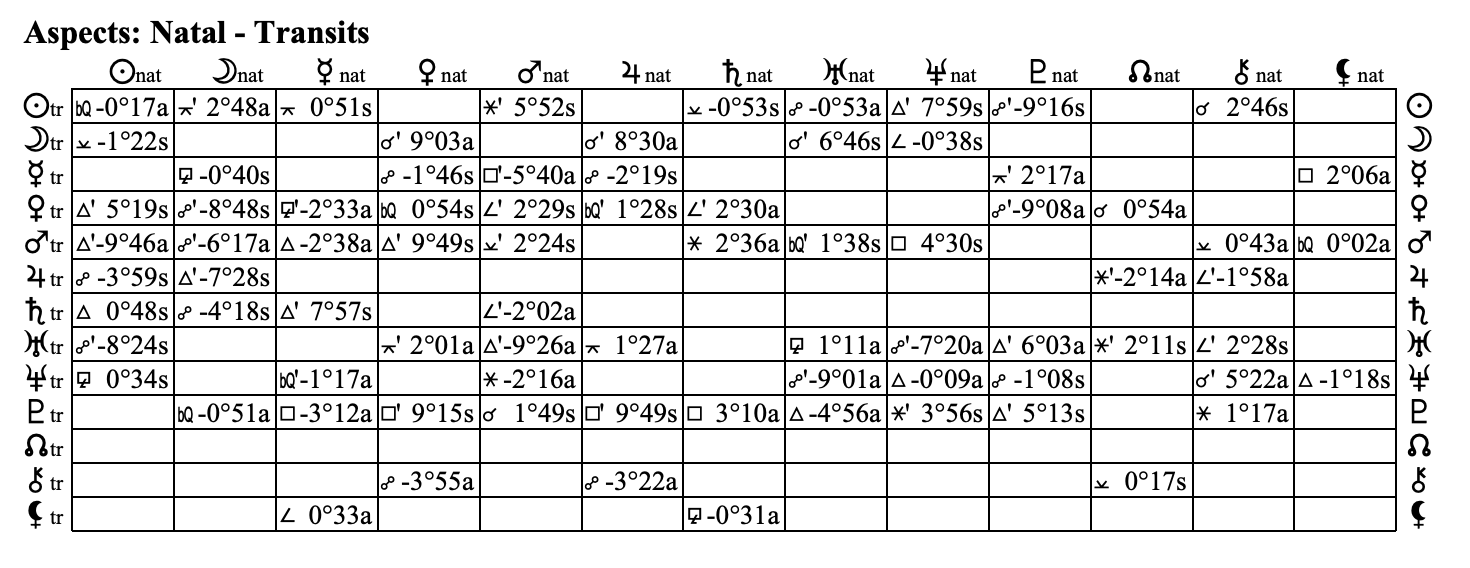 Aspects: Natal - Transits
☉nat ☽nat ☿ nat ♀ nat ♂nat ♃ nat ♄ nat ♅nat ♆nat ♇ nat ☊nat ⚷ nat ⚸ nat
☉tr bQ -0°17a ⚻' 2°48a ⚻ 0°51s ⚹' 5°52s ⚺ -0°53s ☍ -0°53a △' 7°59s ☍'-9°16s ☌ 2°46s ☉
☽tr ⚺ -1°22s ☌' 9°03a ☌' 8°30a ☌' 6°46s ∠ -0°38s ☽
☿ tr ⚼ -0°40s ☍ -1°46s □'-5°40a ☍ -2°19s ⚻' 2°17a □ 2°06a ☿
♀ tr △' 5°19s ☍'-8°48s ⚼'-2°33a bQ 0°54s ∠' 2°29s bQ' 1°28s ∠' 2°30a ☍'-9°08a ☌ 0°54a ♀
♂tr △'-9°46a ☍'-6°17a △ -2°38a △' 9°49s ⚺' 2°24s ⚹ 2°36a bQ' 1°38s □ 4°30s ⚺ 0°43a bQ 0°02a ♂
♃ tr ☍ -3°59s △'-7°28s ⚹'-2°14a ∠'-1°58a ♃
♄ tr △ 0°48s ☍ -4°18s △' 7°57s ∠'-2°02a ♄
♅tr ☍'-8°24s ⚻' 2°01a △'-9°26a ⚻ 1°27a ⚼ 1°11a ☍'-7°20a △' 6°03a ⚹' 2°11s ∠' 2°28s ♅
♆tr ⚼ 0°34s bQ'-1°17a ⚹ -2°16a ☍'-9°01a △ -0°09a ☍ -1°08s ☌' 5°22a △ -1°18s ♆
♇ tr bQ -0°51a □ -3°12a □' 9°15s ☌ 1°49s □' 9°49s □ 3°10a △ -4°56a ⚹' 3°56s △' 5°13s ⚹ 1°17a ♇
☊tr ☊
⚷ tr ☍ -3°55a ☍ -3°22a ⚺ 0°17s ⚷
⚸ tr ∠ 0°33a ⚼ -0°31a ⚸